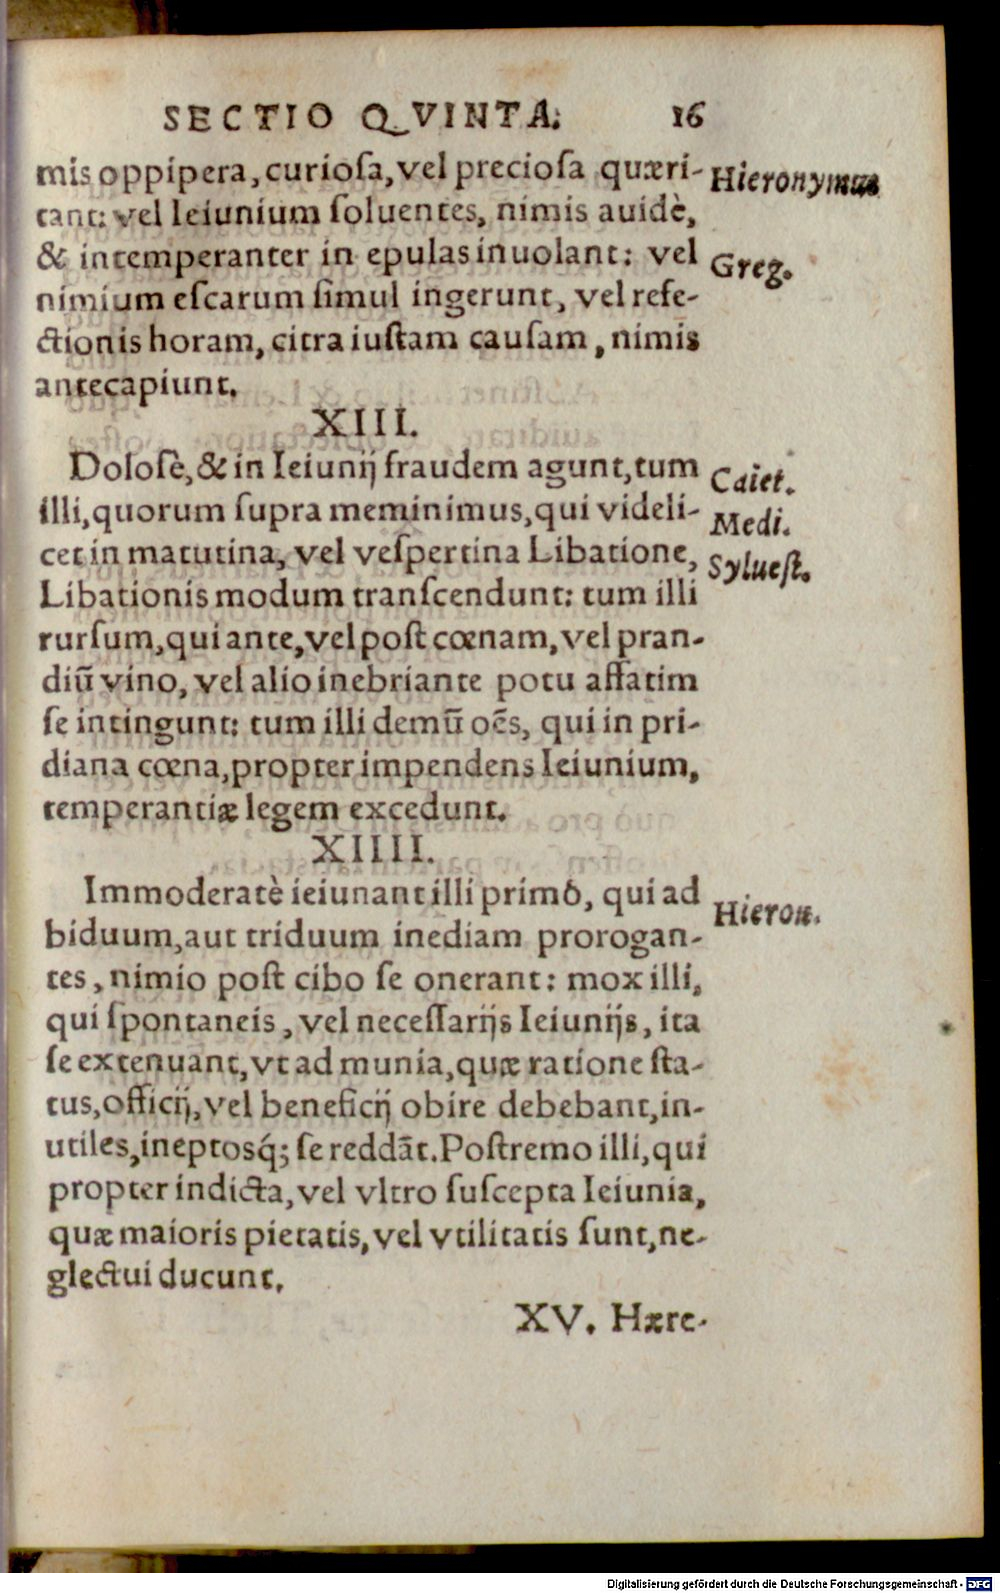 SECTIO QVINTA. 16
mis oppipera, curiosa, vel preciosa quæri- Hieronymus
tant: vel Ieiunium soluentes, nimis auidè,
& intemperanter in epulas inuolant: vel Greg.
nimium escarum simul ingerunt, vel refe-
ctionis horam, citra iustam causam, nimis
antecapiunt.
XIII.
Dolosè, & in Ieiunij fraudem agunt, tum Caiet.
illi, quorum supra meminimus, qui videli- Medi.
cet in matutina, vel vespertina Libatione, Syluest.
Libationis modum transcendunt: tum illi
rursum, qui ante, vel post cœnam, vel pran-
diũ vino, vel alio inebriante potu affatim
se intingunt: tum illi demũ oẽs, qui in pri-
diana cœna, propter impendens Ieiunium,
temperantiæ legem excedunt.
XIIII.
Immoderatè ieiunant illi primò, qui ad Hieron.
biduum, aut triduum inediam prorogan-
tes, nimio post cibo se onerant: mox illi,
qui spontaneis, vel necessarijs Ieiunijs, ita
se extenuant, vt ad munia, quæ ratione sta-
tus, officij, vel beneficij obire debebant, in-
utiles, ineptosq́; se reddãt. Postremo illi, qui
propter indicta, vel vltro suscepta Ieiunia,
quæ maioris pietatis, vel vtilitatis sunt, ne-
glectui ducunt.
XV. Hære-
Digitalisierung gefördert durch die Deutsche Forschungsgemeinschaft - DFG